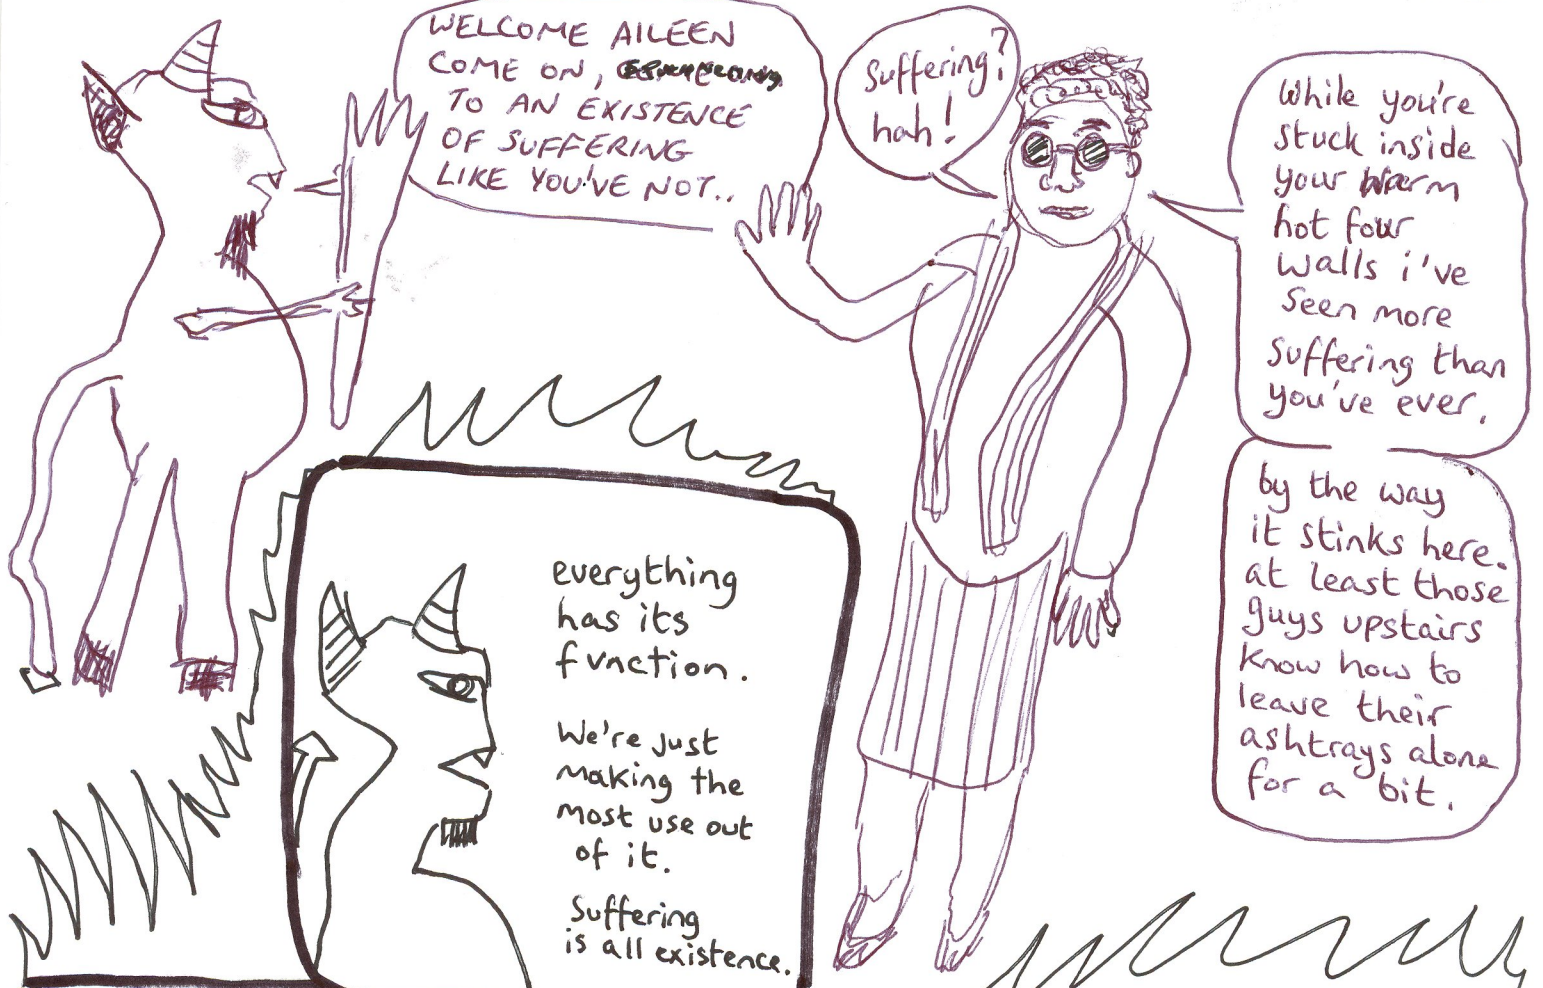 WELCOME AILEEN
COME ON,
TO AN EXISTENCE
OF SUFFERING
LIKE YOU'VE NOT..
Suffering?
hah!
While you're
stuck inside
your warm
hot four
walls i've
seen more
suffering than
you've ever.
by the way
it stinks here.
at least those
guys upstairs
know how to
leave their
ashtrays alone
for a bit.
everything
has its
function.
We're just
making the
most use out
of it.
Suffering
is all existence.